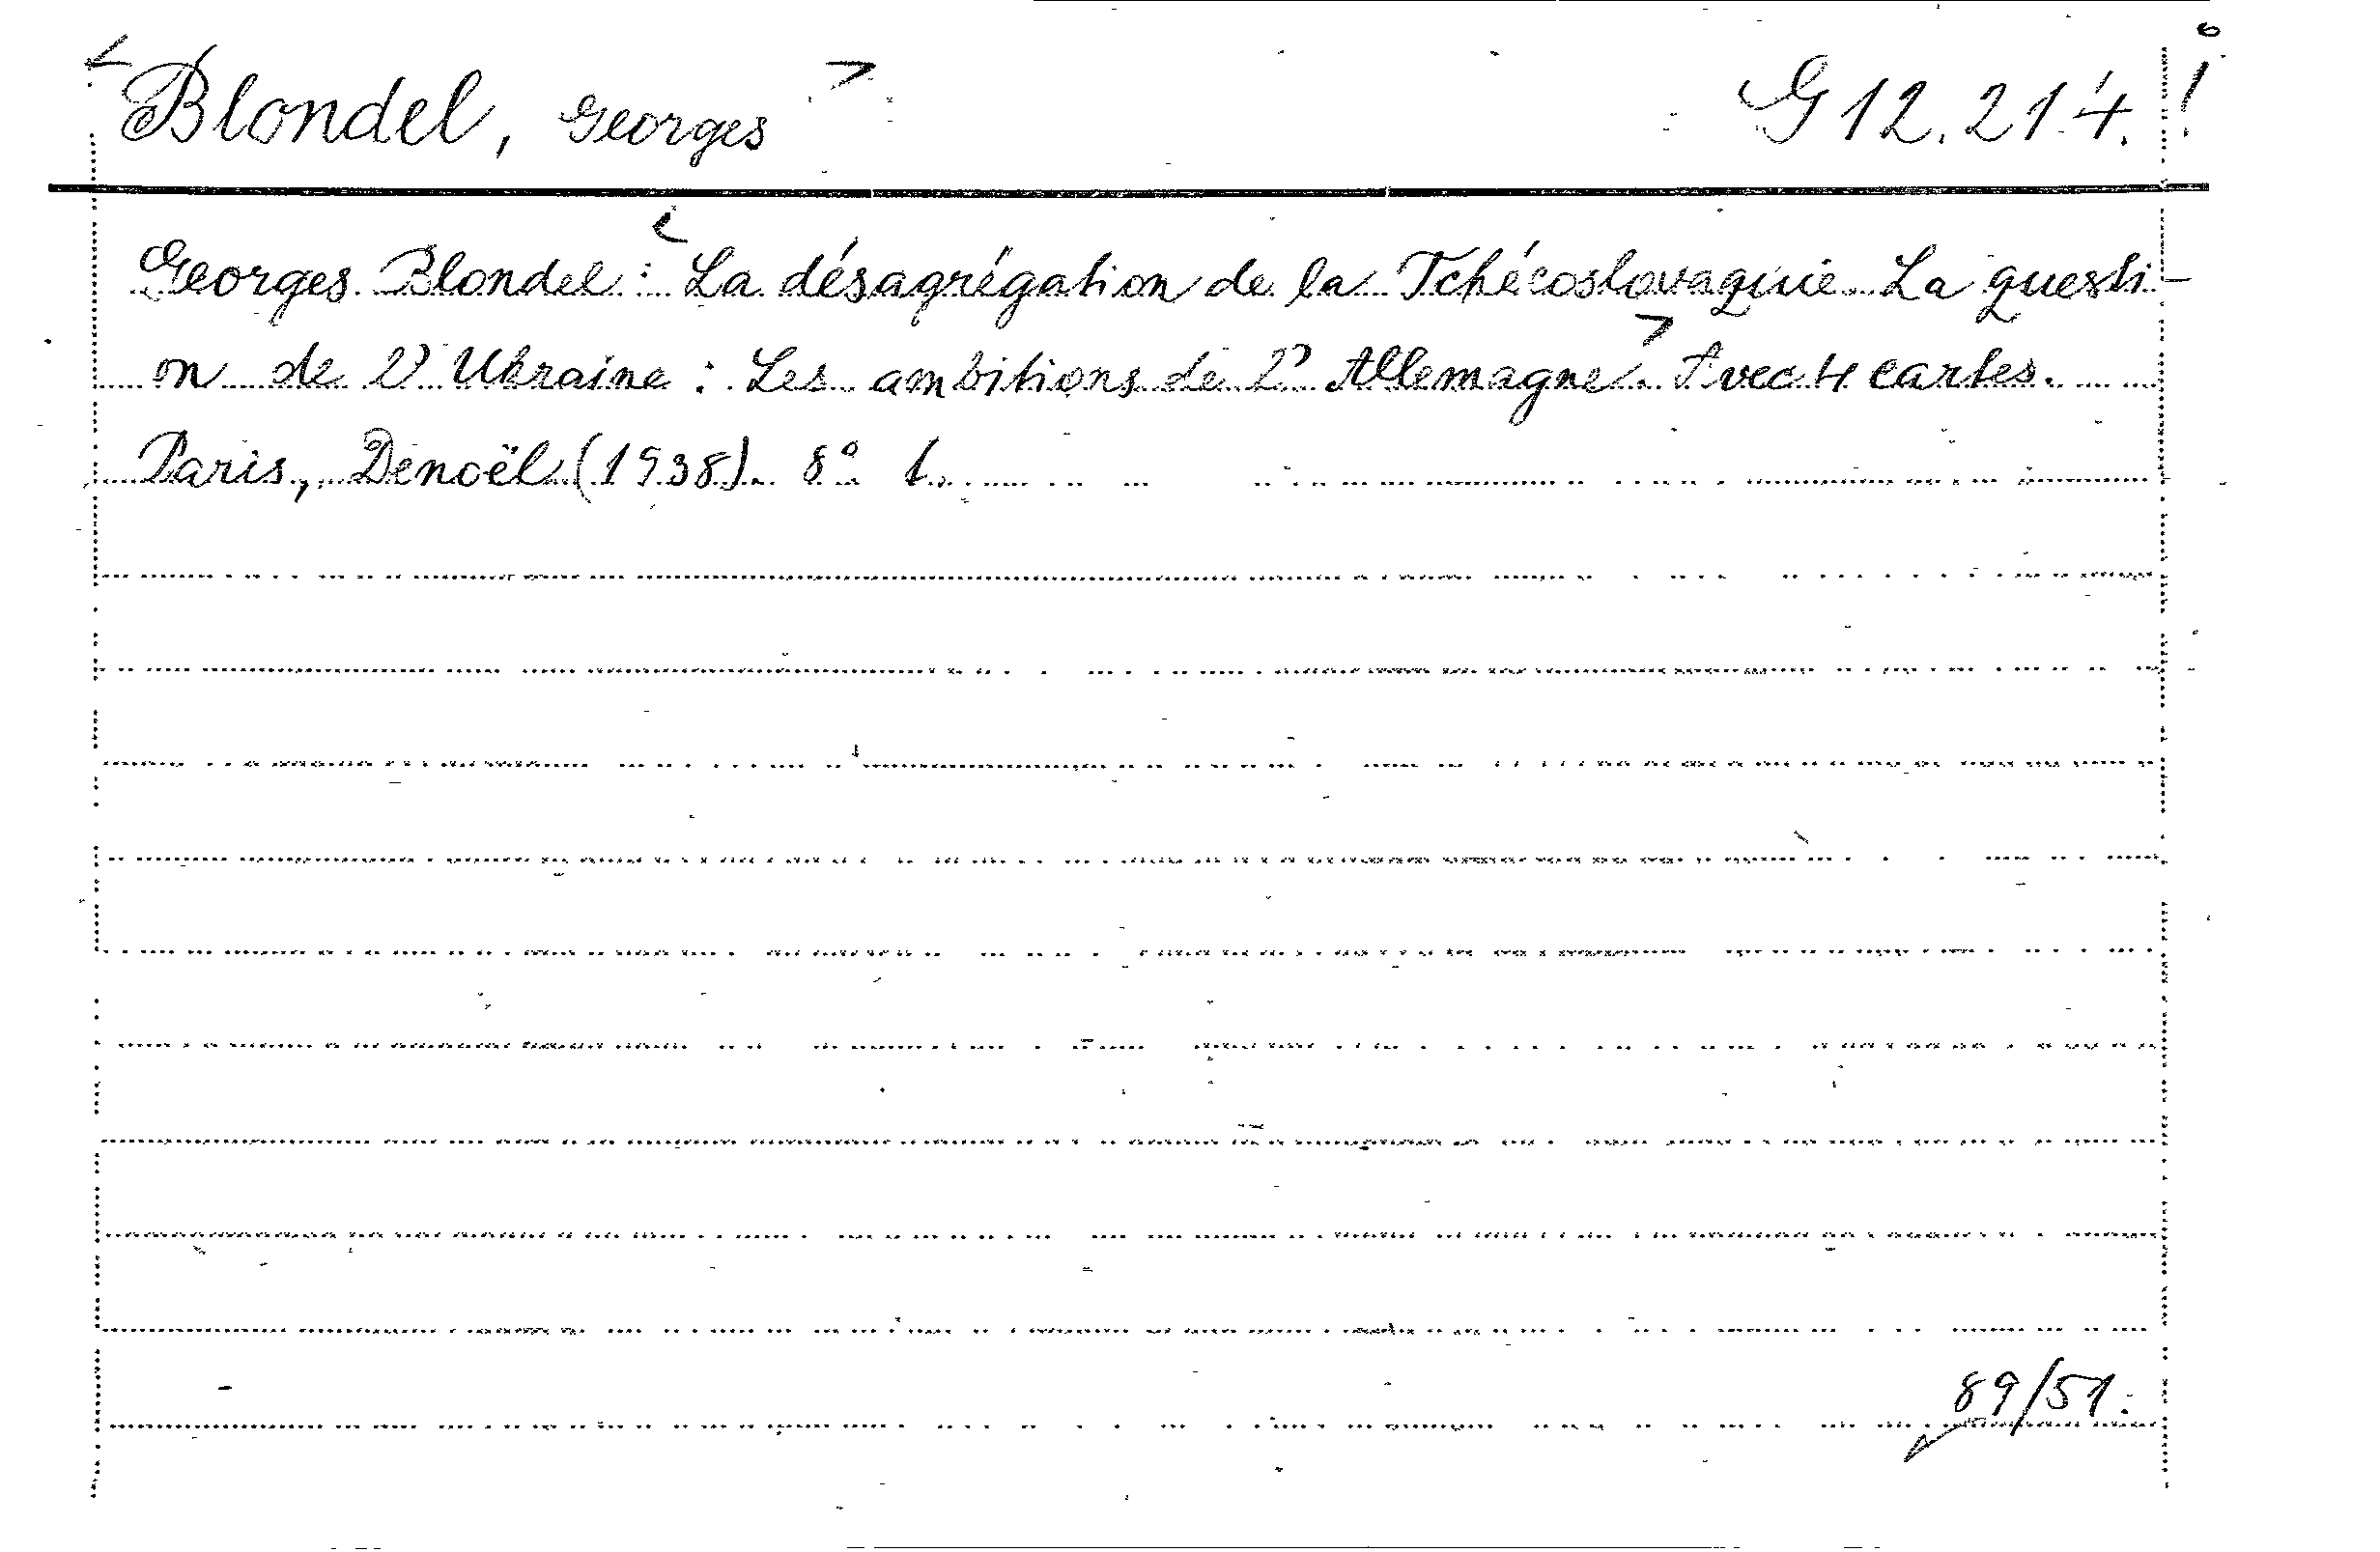 Blondel, Georges G 12.214. !
Georges Blondel: La désagrégation de la Tchécoslovaquie. La questi-
on de l'Ukraine: Les ambitions de l'Allemagne. Avec 4 cartes.
Paris, Denoël (1938). 8°
89/51.